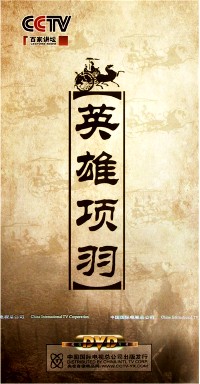 CCTV
百家讲坛
英雄项羽
中国国际电视总公司 China International TV Corporation
DVD
中国国际电视总公司出版发行